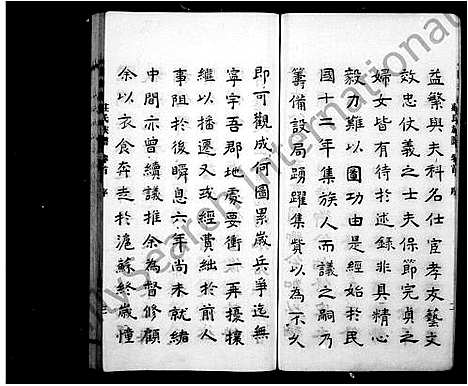 益繁與夫科名仕宦孝友藝文
效忠仗義之士夫保節完貞之
婦女皆有待於述錄非具精心
毅力難以圖功由是經始於民
國十二年集族人而議之嗣乃
籌備設局踴躍集貲以為不久
即可觀成何圖累歲兵爭迄無
寧宇吾郡地處要衝一再擾攘
繼以播遷又或經費絀於前人
事阻於後瞬息六年尚未就緒
中間亦曾續議推余為督修顧
余以衣食奔走於滬蘇終歲憧
莊氏族譜
卷首 序
MySearch International